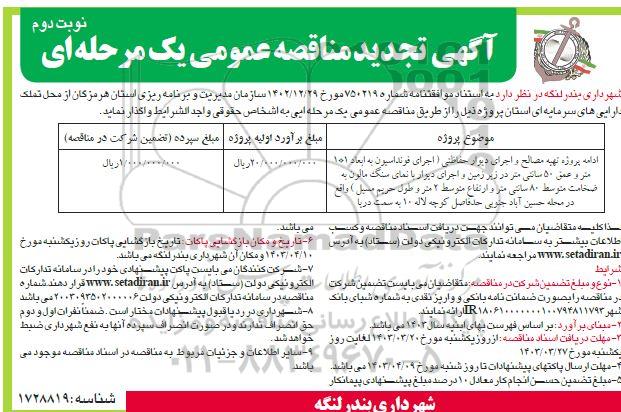 نوبت دوم
آگهی تجدید مناقصه عمومی یک مرحله‌ای
شهرداری بندر لنگه در نظر دارد به استناد موافقتنامه شماره ۷۵۰۲۱۹ مورخ ۱۴۰۲/۱۲/۲۹ سازمان مدیریت و برنامه ریزی استان هرمزگان از محل تملک
دارایی های سرمایه ای استان پروژه ذیل را از طریق مناقصه عمومی یک مرحله ایی به اشخاص حقوقی واجد الشرایط واگذار نماید.
موضوع پروژه
مبلغ برآورد اولیه پروژه
مبلغ سپرده (تضمین شرکت در مناقصه)
ادامه پروژه تهیه مصالح و اجرای دیوار حفاظتی ( اجرای فونداسیون به ابعاد ۱*۱
متر و عمق ۵۰ سانتی متر در زیر زمین و اجرای دیوار با نمای سنگ مالون به
ضخامت متوسط ۸۰ سانتی متر و ارتفاع متوسط ۲ متر و طول حریم مسیل ) واقع
در محله حسین آباد جنوبی حدفاصل کوچه لاله ۱۰ به سمت دریا
۲۰/۰۰۰/۰۰۰/۰۰۰ریال
۱/۰۰۰/۰۰۰/۰۰۰ریال
لذا کلیه متقاضیان می توانند جهت دریافت اسناد مناقصه و کسب
اطلاعات بیشتر به سامانه تدارکات الکترونیکی دولت (ستاد) به آدرس
www.setadiran.ir مراجعه نمایند.
شرایط
۱-نوع و مبلغ تضمین شرکت در مناقصه: متقاضیان می بایست تضمین شرکت
در مناقصه را بصورت ضمانت نامه بانکی و واریز نقدی به شماره شبای بانک
شهر ارائه نمایند.
۲-مبنای برآورد: بر اساس فهرست بهای ابنیه سال ۱۴۰۳ می باشد.
۳-مهلت دریافت اسناد مناقصه: از روز یکشنبه مورخ ۱۴۰۳/۰۳/۲۰ لغایت روز
یکشنبه مورخ ۱۴۰۳/۰۳/۲۷
۴-مهلت ارسال پاکتهای پیشنهادات تا روز شنبه مورخ ۱۴۰۳/۰۴/۰۹ می باشد.
۵-مبلغ تضمین حسن انجام کار معادل ۱۰ درصد مبلغ پیشنهادی پیمانکار
می باشد.
۶-تاریخ و مکان بازگشایی پاکات: تاریخ بازگشایی پاکات روز یکشنبه مورخ
۱۴۰۳/۰۴/۱۰ و مکان آن شهرداری بندر لنگه می باشد.
۷-شرکت کنندگان می بایست پاکت پیشنهادی خود را در سامانه تدارکات
الکترونیکی دولت (ستاد) به آدرس www.setadiran.ir قرار دهند شماره
مناقصه در سامانه تدارکات الکترونیکی دولت ۲۰۰۳۰۹۳۵۰۲۰۰۰۰۰۶ می باشد
۸-شهرداری در رد یا قبول پیشنهادات مختار است. ضمنا نفرات اول و دوم
حق انصراف ندارند و در صورت انصراف سپرده آنها به نفع شهرداری ضبط
خواهد شد.
۹-سایر اطلاعات و جزئیات مربوط به مناقصه در اسناد مناقصه موجود می
باشد.
شناسه: ۱۷۲۸۸۱۹
شهرداری بندر لنگه
ParsNamadData
۰۲۱-۸۸۳۴۹۶۷۰-۵